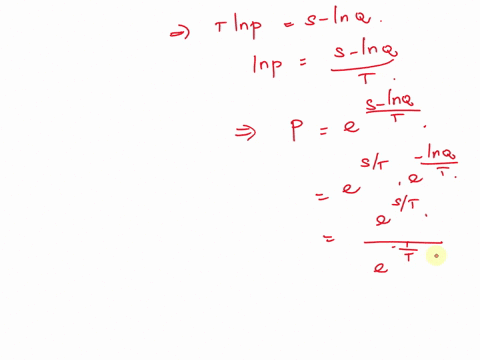 ⇒ T lnp = S - lnQ.
lnp = (S - lnQ)/T.
⇒ P = e^((S - lnQ)/T).
= e^(S/T) . e^(-lnQ/T).
= e^(S/T). / e^(-1/T)